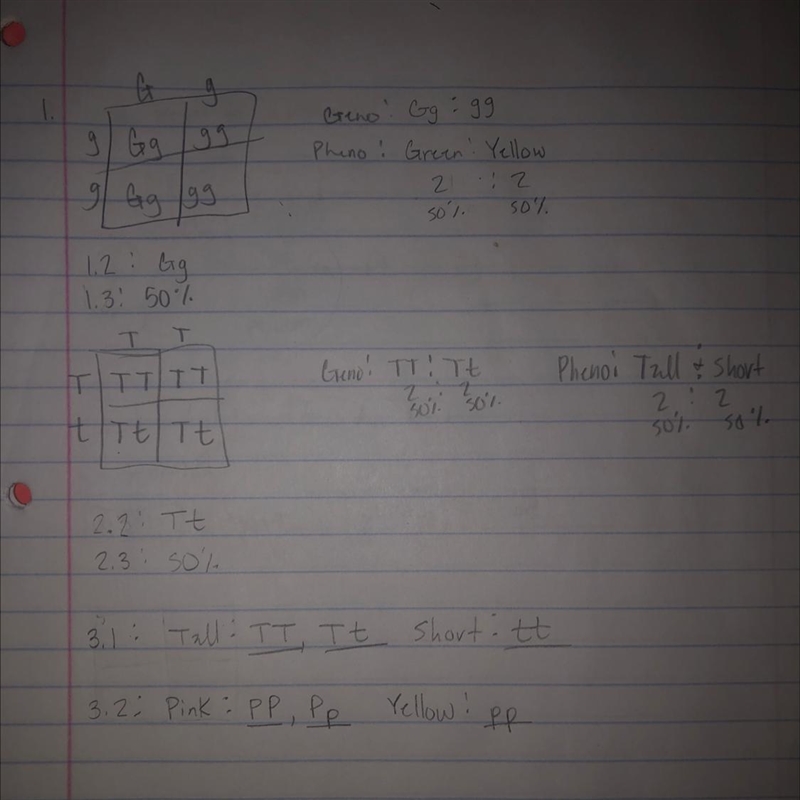 G g
1. Geno: Gg : gg
g Gg gg
Pheno: Green : Yellow
g Gg gg
2 : 2
50% 50%
1.2: Gg
1.3: 50%
T T
T TT TT
Geno: TT : Tt Pheno: Tall : Short
2 : 2 2 : 2
50% 50% 50% 50%
t Tt Tt
2.2: Tt
2.3: 50%
3.1: Tall: TT, Tt Short: tt
3.2: Pink: PP, Pp Yellow: pp